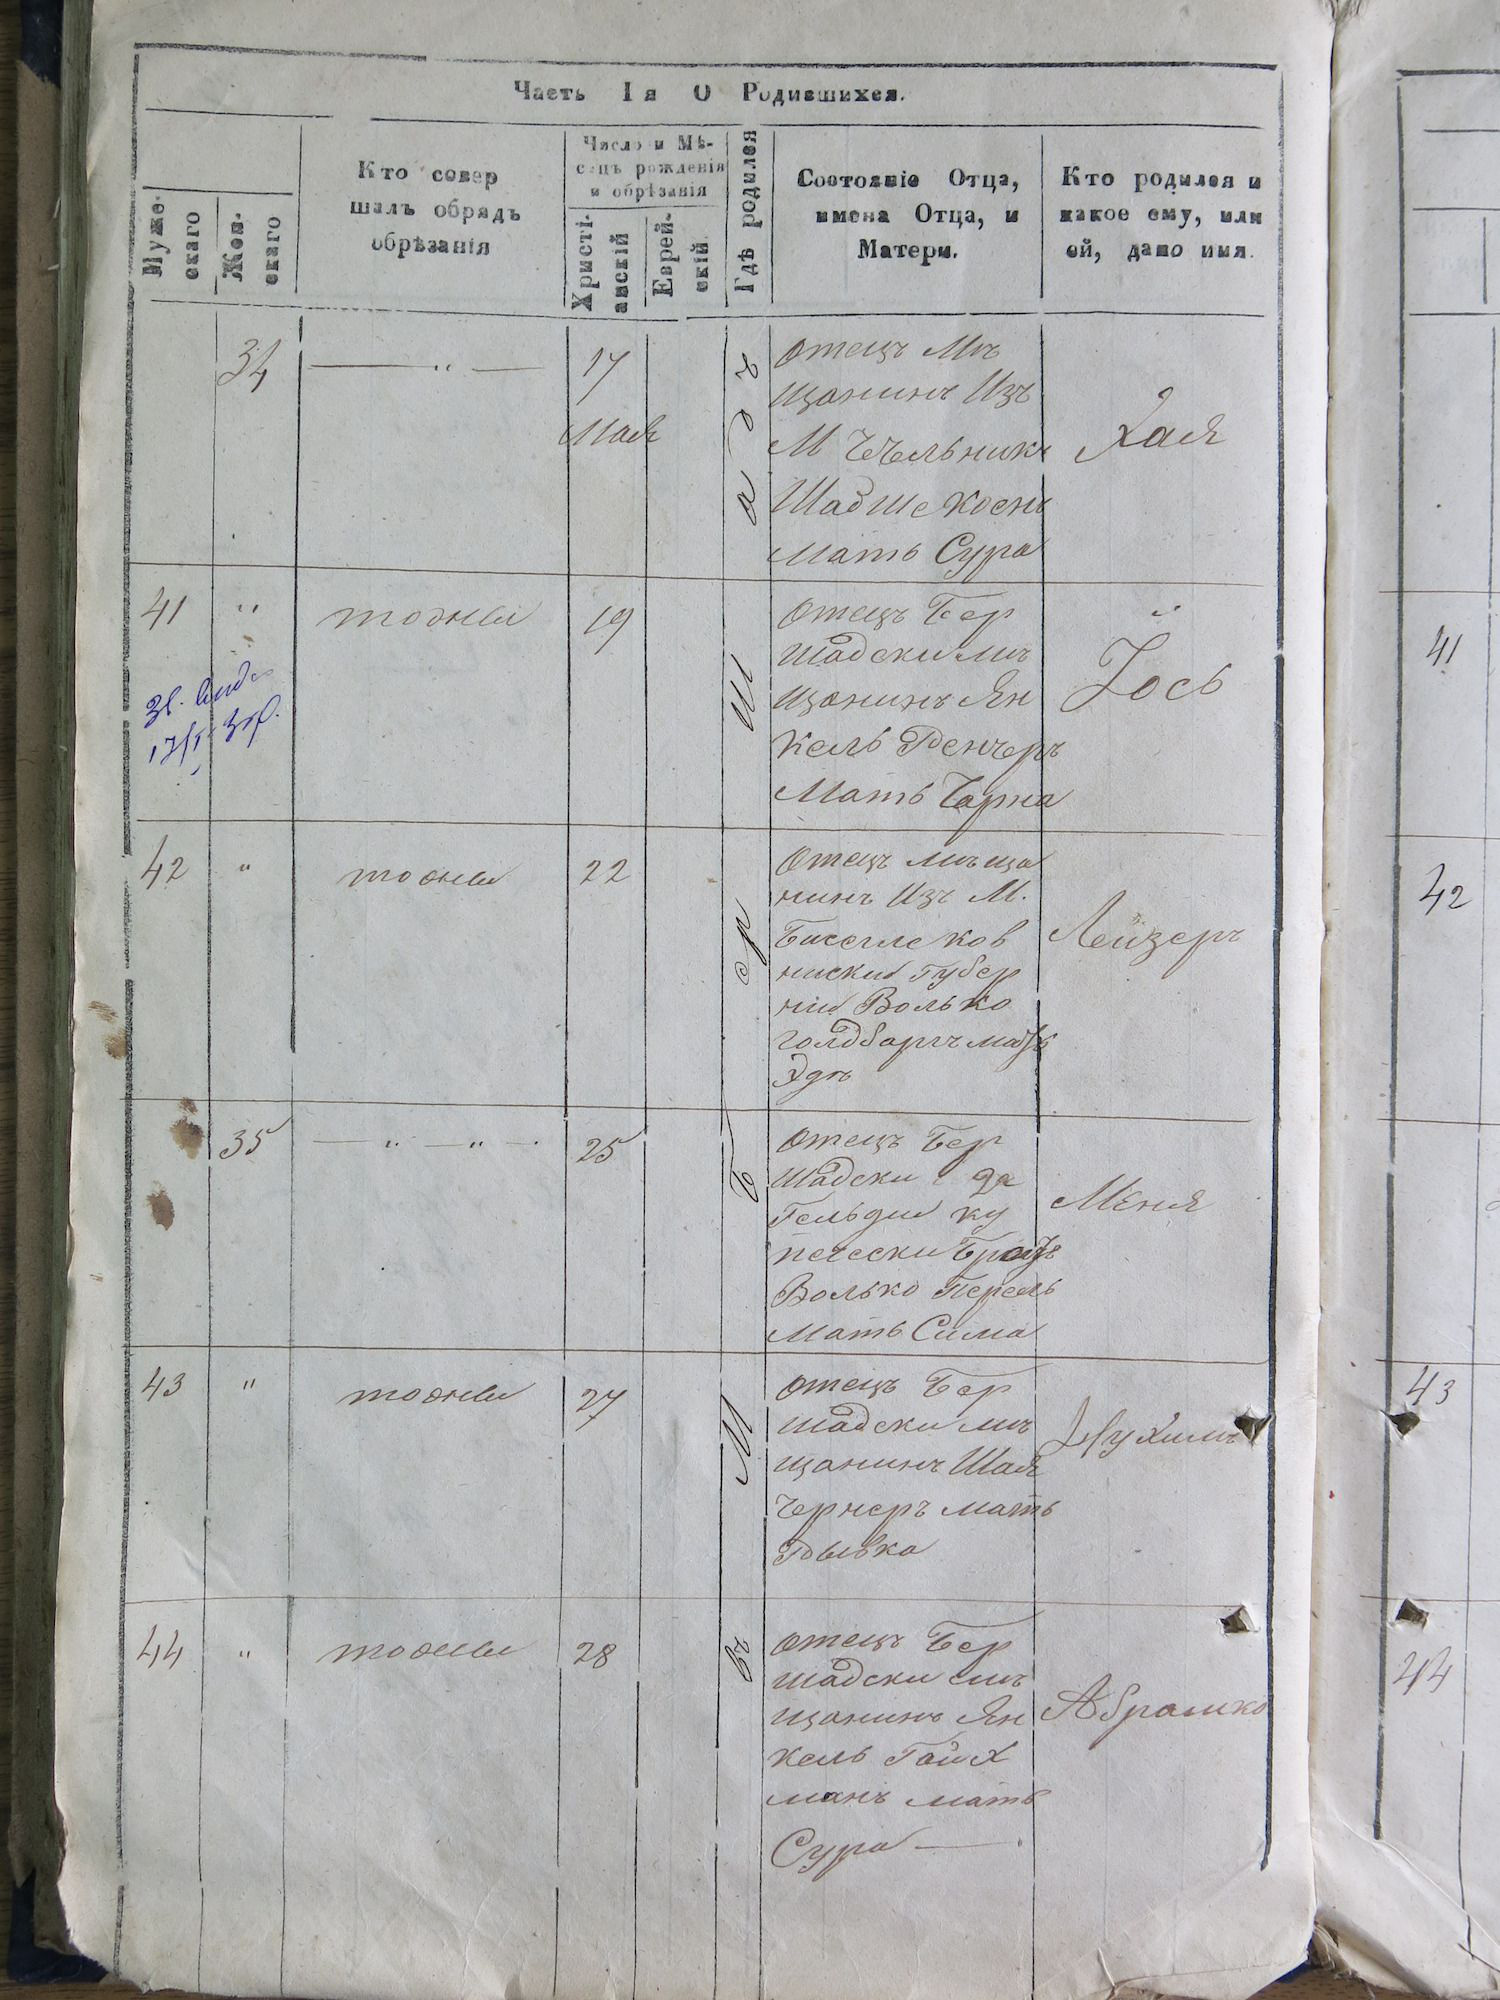 Часть I я О Родившихся.
Муже-
скаго
Жен-
скаго
Кто совер
шалъ обрядъ
обрѣзанія
Число и Мѣ-
сецъ рожденія
и обрѣзанія
Христі-
анскій
Еврей-
скій
Гдѣ родился
Состояніе Отца,
имена Отца, и
Матери.
Кто родился и
какое ему, или
ей, дано имя.
въ М Бершадъ
34 — " — 17
Мая
Отецъ Мѣ
щанинъ Изъ
М Чечельника
Шабше Коенъ
Мать Сура
Хая
41 " тоже 19
Отецъ Бер
шадски мѣ
щанинъ Ян
кель
Мать Чарна
Іось
42 " тоже 22
Отецъ мѣща
нинъ Изъ М.
губер
ніи Волько
голдбаргъ мать
Эдя
Лейзеръ
35 — " — " — 25
Отецъ Бер
шадски
ку
печески братъ
Волько Перель
Мать Сима
Меня
43 " тоже 27
Отецъ Бер
шадски мѣ
щанинъ Шая
Чернеръ мать
Рывка
Нухимъ
44 " тоже 28
Отецъ Бер
шадски мѣ
щанинъ Ян
кель Гойх
манъ мать
Сура —
Абрамко
41
42
43
44